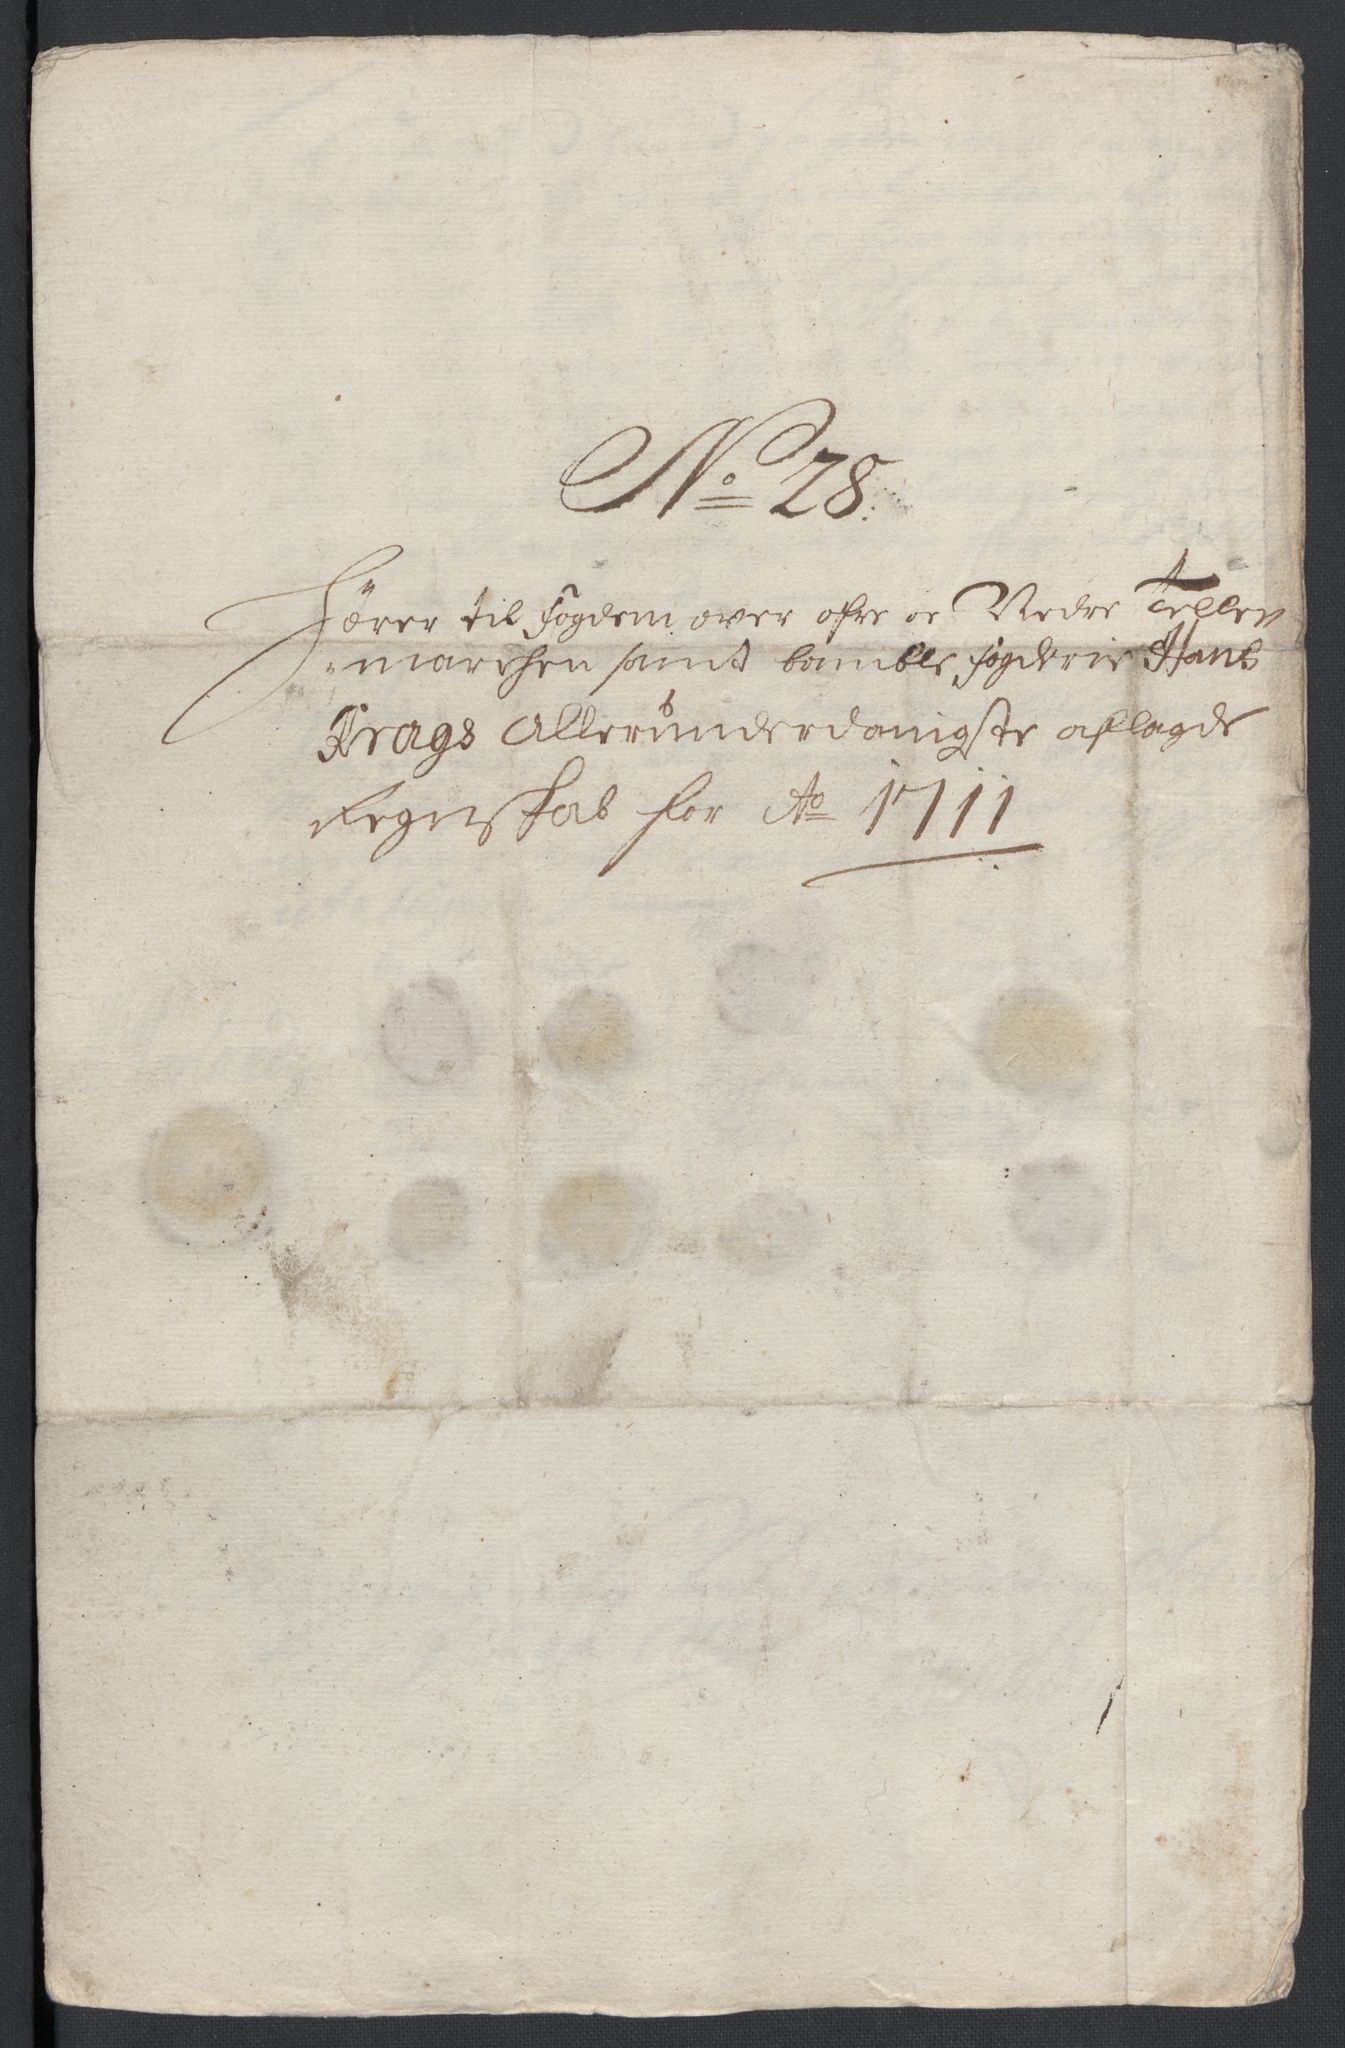 No 28.
Hører til fogdem over øfre oc Nedre Tellen
=marchen samt bamble fogderie Hans
Krags Allerunderdanigste aflagde
Regenskab for Ao 1711